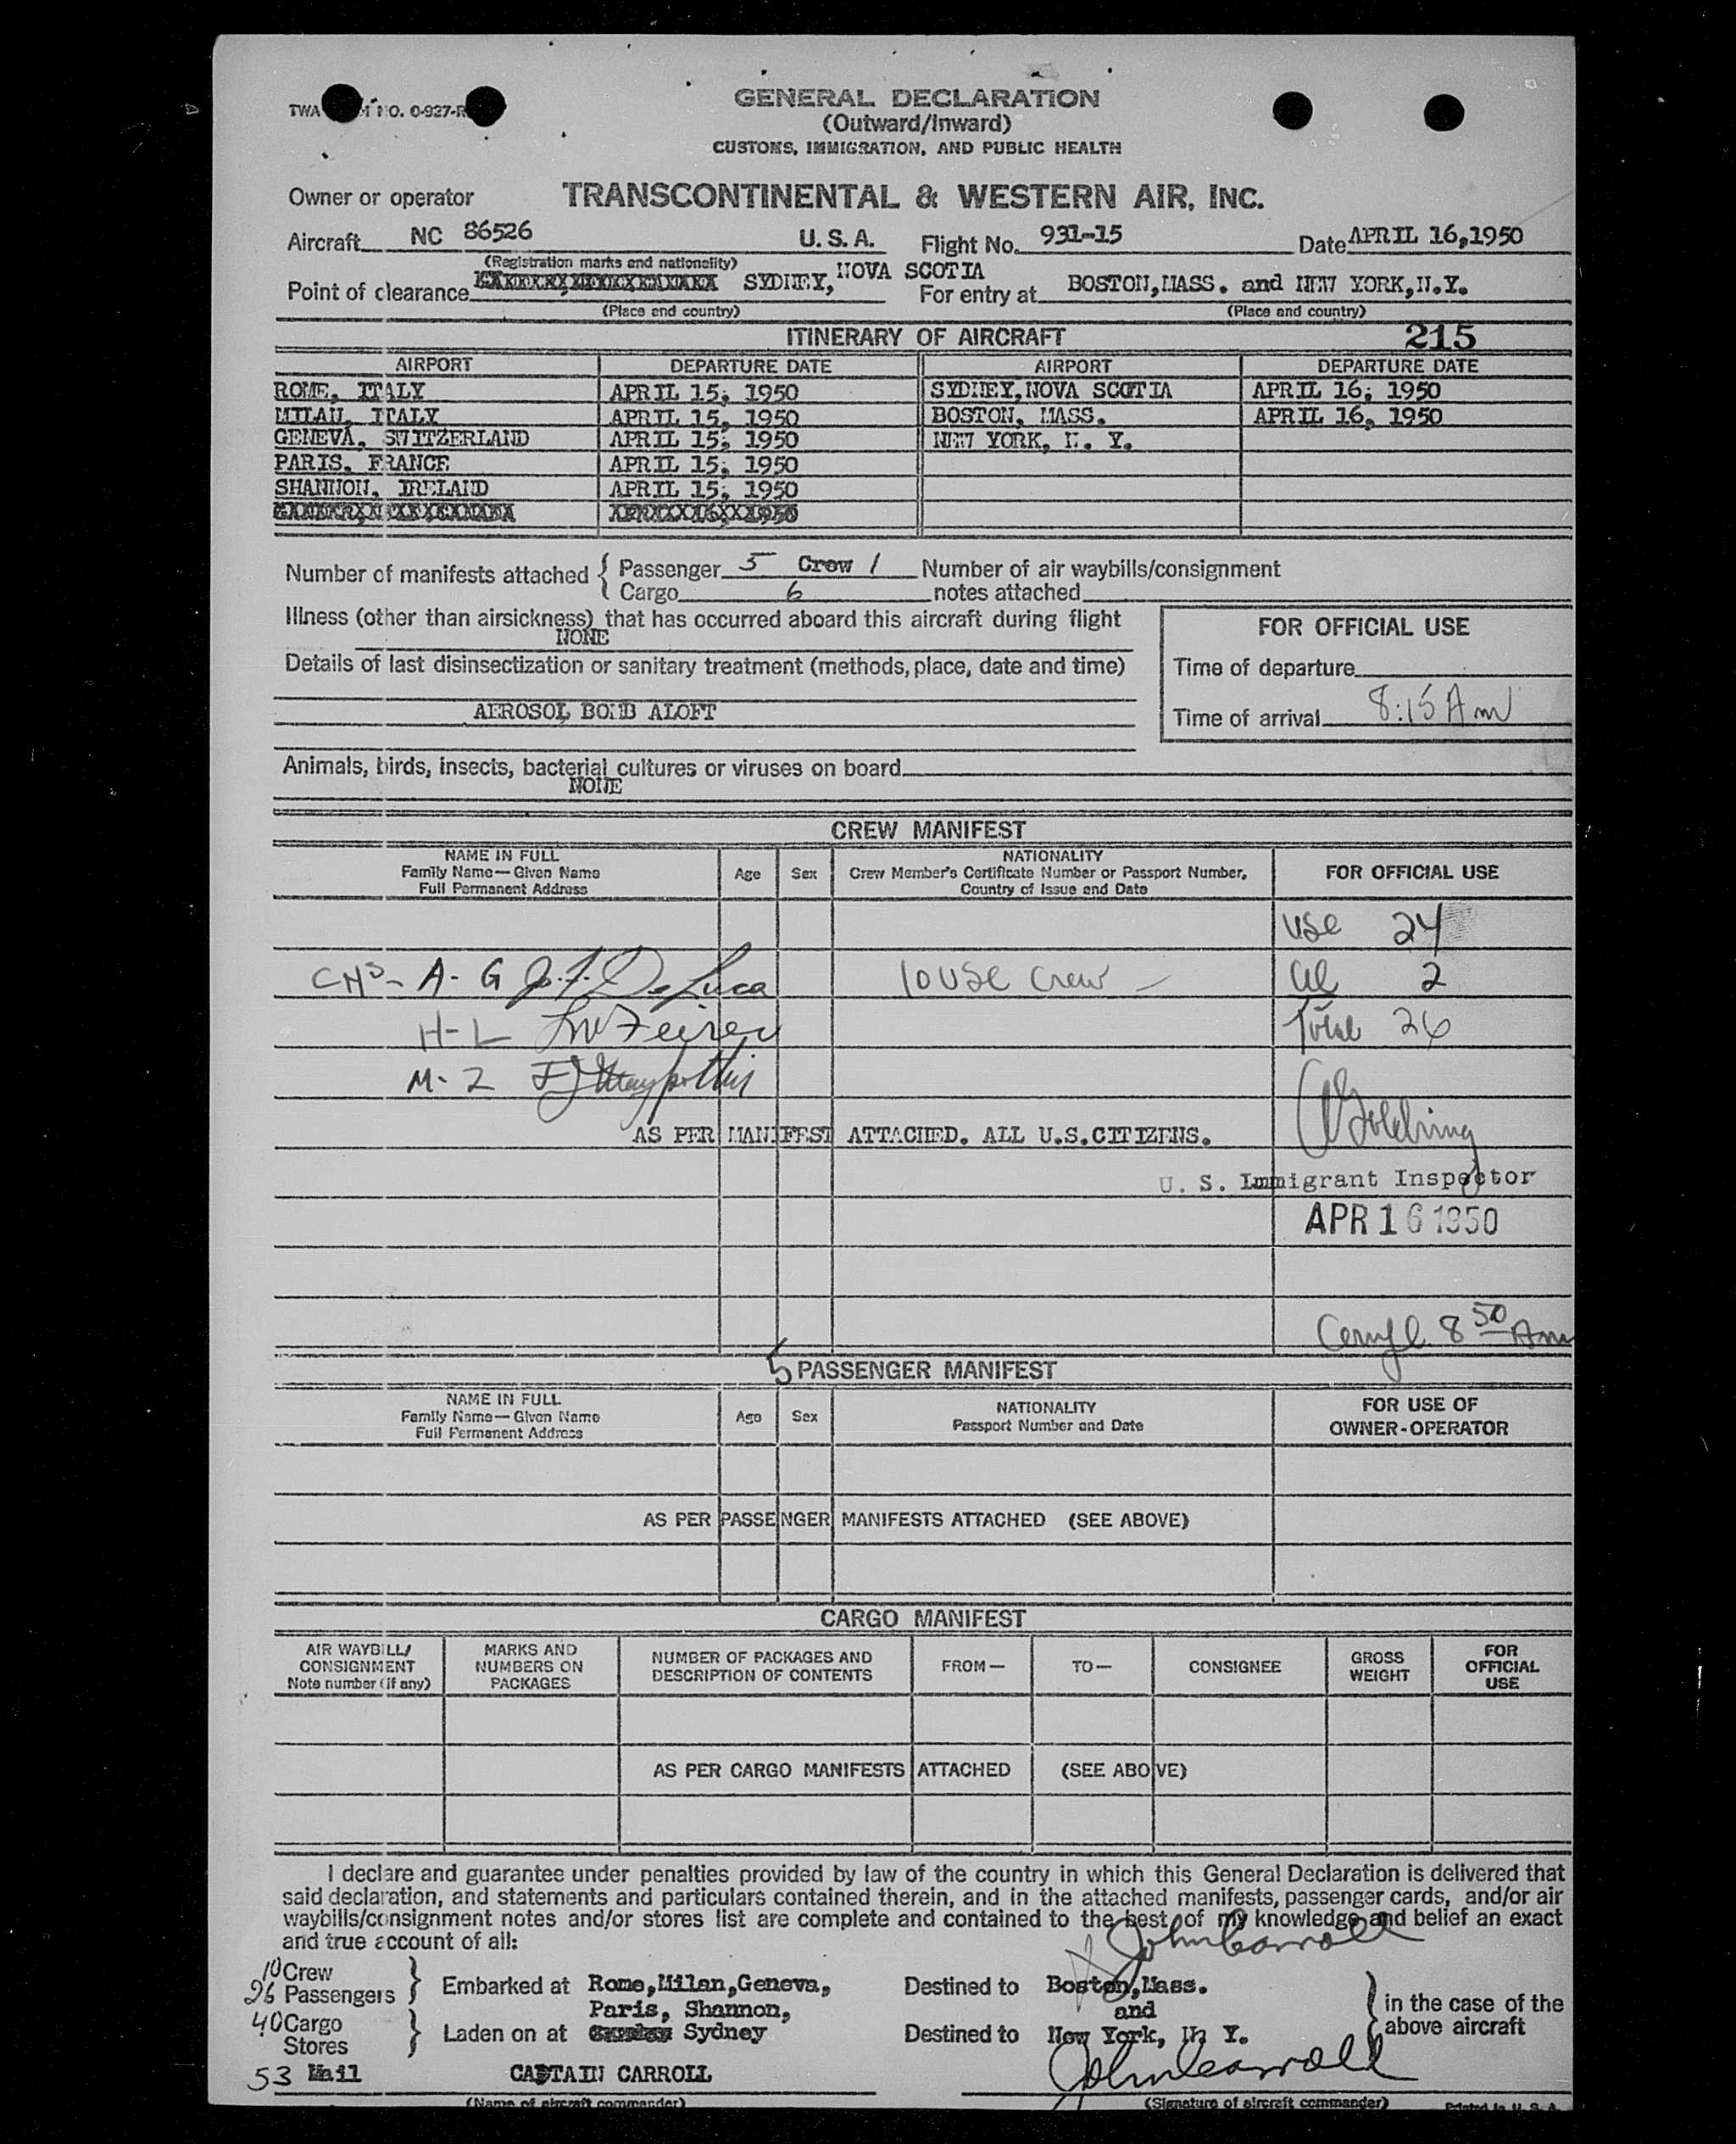 TWA NO. 0-927-R
GENERAL DECLARATION
(Outward/Inward)
CUSTOMS, IMMIGRATION, AND PUBLIC HEALTH
Owner or operator TRANSCONTINENTAL & WESTERN AIR, INC.
Aircraft NC 86526 U. S. A. Flight No. 931-15 Date APRIL 16,1950
(Registration marks and nationality)
Point of clearance SYDNEY, NOVA SCOTIA For entry at BOSTON,MASS. and NEW YORK,N.Y.
(Place and country) (Place and country)
ITINERARY OF AIRCRAFT 215
AIRPORT DEPARTURE DATE AIRPORT DEPARTURE DATE
ROME, ITALY APRIL 15, 1950 SYDNEY,NOVA SCOTIA APRIL 16, 1950
MILAN, ITALY APRIL 15, 1950 BOSTON, MASS. APRIL 16, 1950
GENEVA, SWITZERLAND APRIL 15, 1950 NEW YORK, N. Y.
PARIS, FRANCE APRIL 15, 1950
SHANNON, IRELAND APRIL 15, 1950
Number of manifests attached { Passenger 5 Crew 1 Number of air waybills/consignment
Cargo 6 notes attached
Illness (other than airsickness) that has occurred aboard this aircraft during flight
NONE
FOR OFFICIAL USE
Details of last disinsectization or sanitary treatment (methods, place, date and time)
Time of departure
AEROSOL BOMB ALOFT
Time of arrival 8:15 Am
Animals, birds, insects, bacterial cultures or viruses on board
NONE
CREW MANIFEST
NAME IN FULL
Family Name—Given Name
Full Permanent Address
Age Sex
NATIONALITY
Crew Member's Certificate Number or Passport Number,
Country of Issue and Date
FOR OFFICIAL USE
USC 24
A- G J. F. DeLuca 10 USC Crew - al 2
H-L Total 26
M- Z
AS PER MANIFEST ATTACHED. ALL U.S.CITIZENS. Goldring
U. S. Immigrant Inspector
APR 16 1950
8 50 Am
5 PASSENGER MANIFEST
NAME IN FULL
Family Name—Given Name
Full Permanent Address
Age Sex
NATIONALITY
Passport Number and Date
FOR USE OF
OWNER-OPERATOR
AS PER PASSENGER MANIFESTS ATTACHED (SEE ABOVE)
CARGO MANIFEST
AIR WAYBILL/
CONSIGNMENT
Note number (if any)
MARKS AND
NUMBERS ON
PACKAGES
NUMBER OF PACKAGES AND
DESCRIPTION OF CONTENTS
FROM—
TO—
CONSIGNEE
GROSS
WEIGHT
FOR
OFFICIAL
USE
AS PER CARGO MANIFESTS ATTACHED (SEE ABOVE)
I declare and guarantee under penalties provided by law of the country in which this General Declaration is delivered that
said declaration, and statements and particulars contained therein, and in the attached manifests, passenger cards, and/or air
waybills/consignment notes and/or stores list are complete and contained to the best of my knowledge and belief an exact
and true account of all:
John Carroll
10 Crew
26 Passengers } Embarked at Rome,Milan,Geneva, Destined to Boston,Mass.
Paris, Shannon, and
40 Cargo
Stores } Laden on at Sydney Destined to New York, N. Y.
} in the case of the
above aircraft
53 Mail CAPTAIN CARROLL John Carroll
(Name of aircraft commander) (Signature of aircraft commander) Printed in U. S. A.